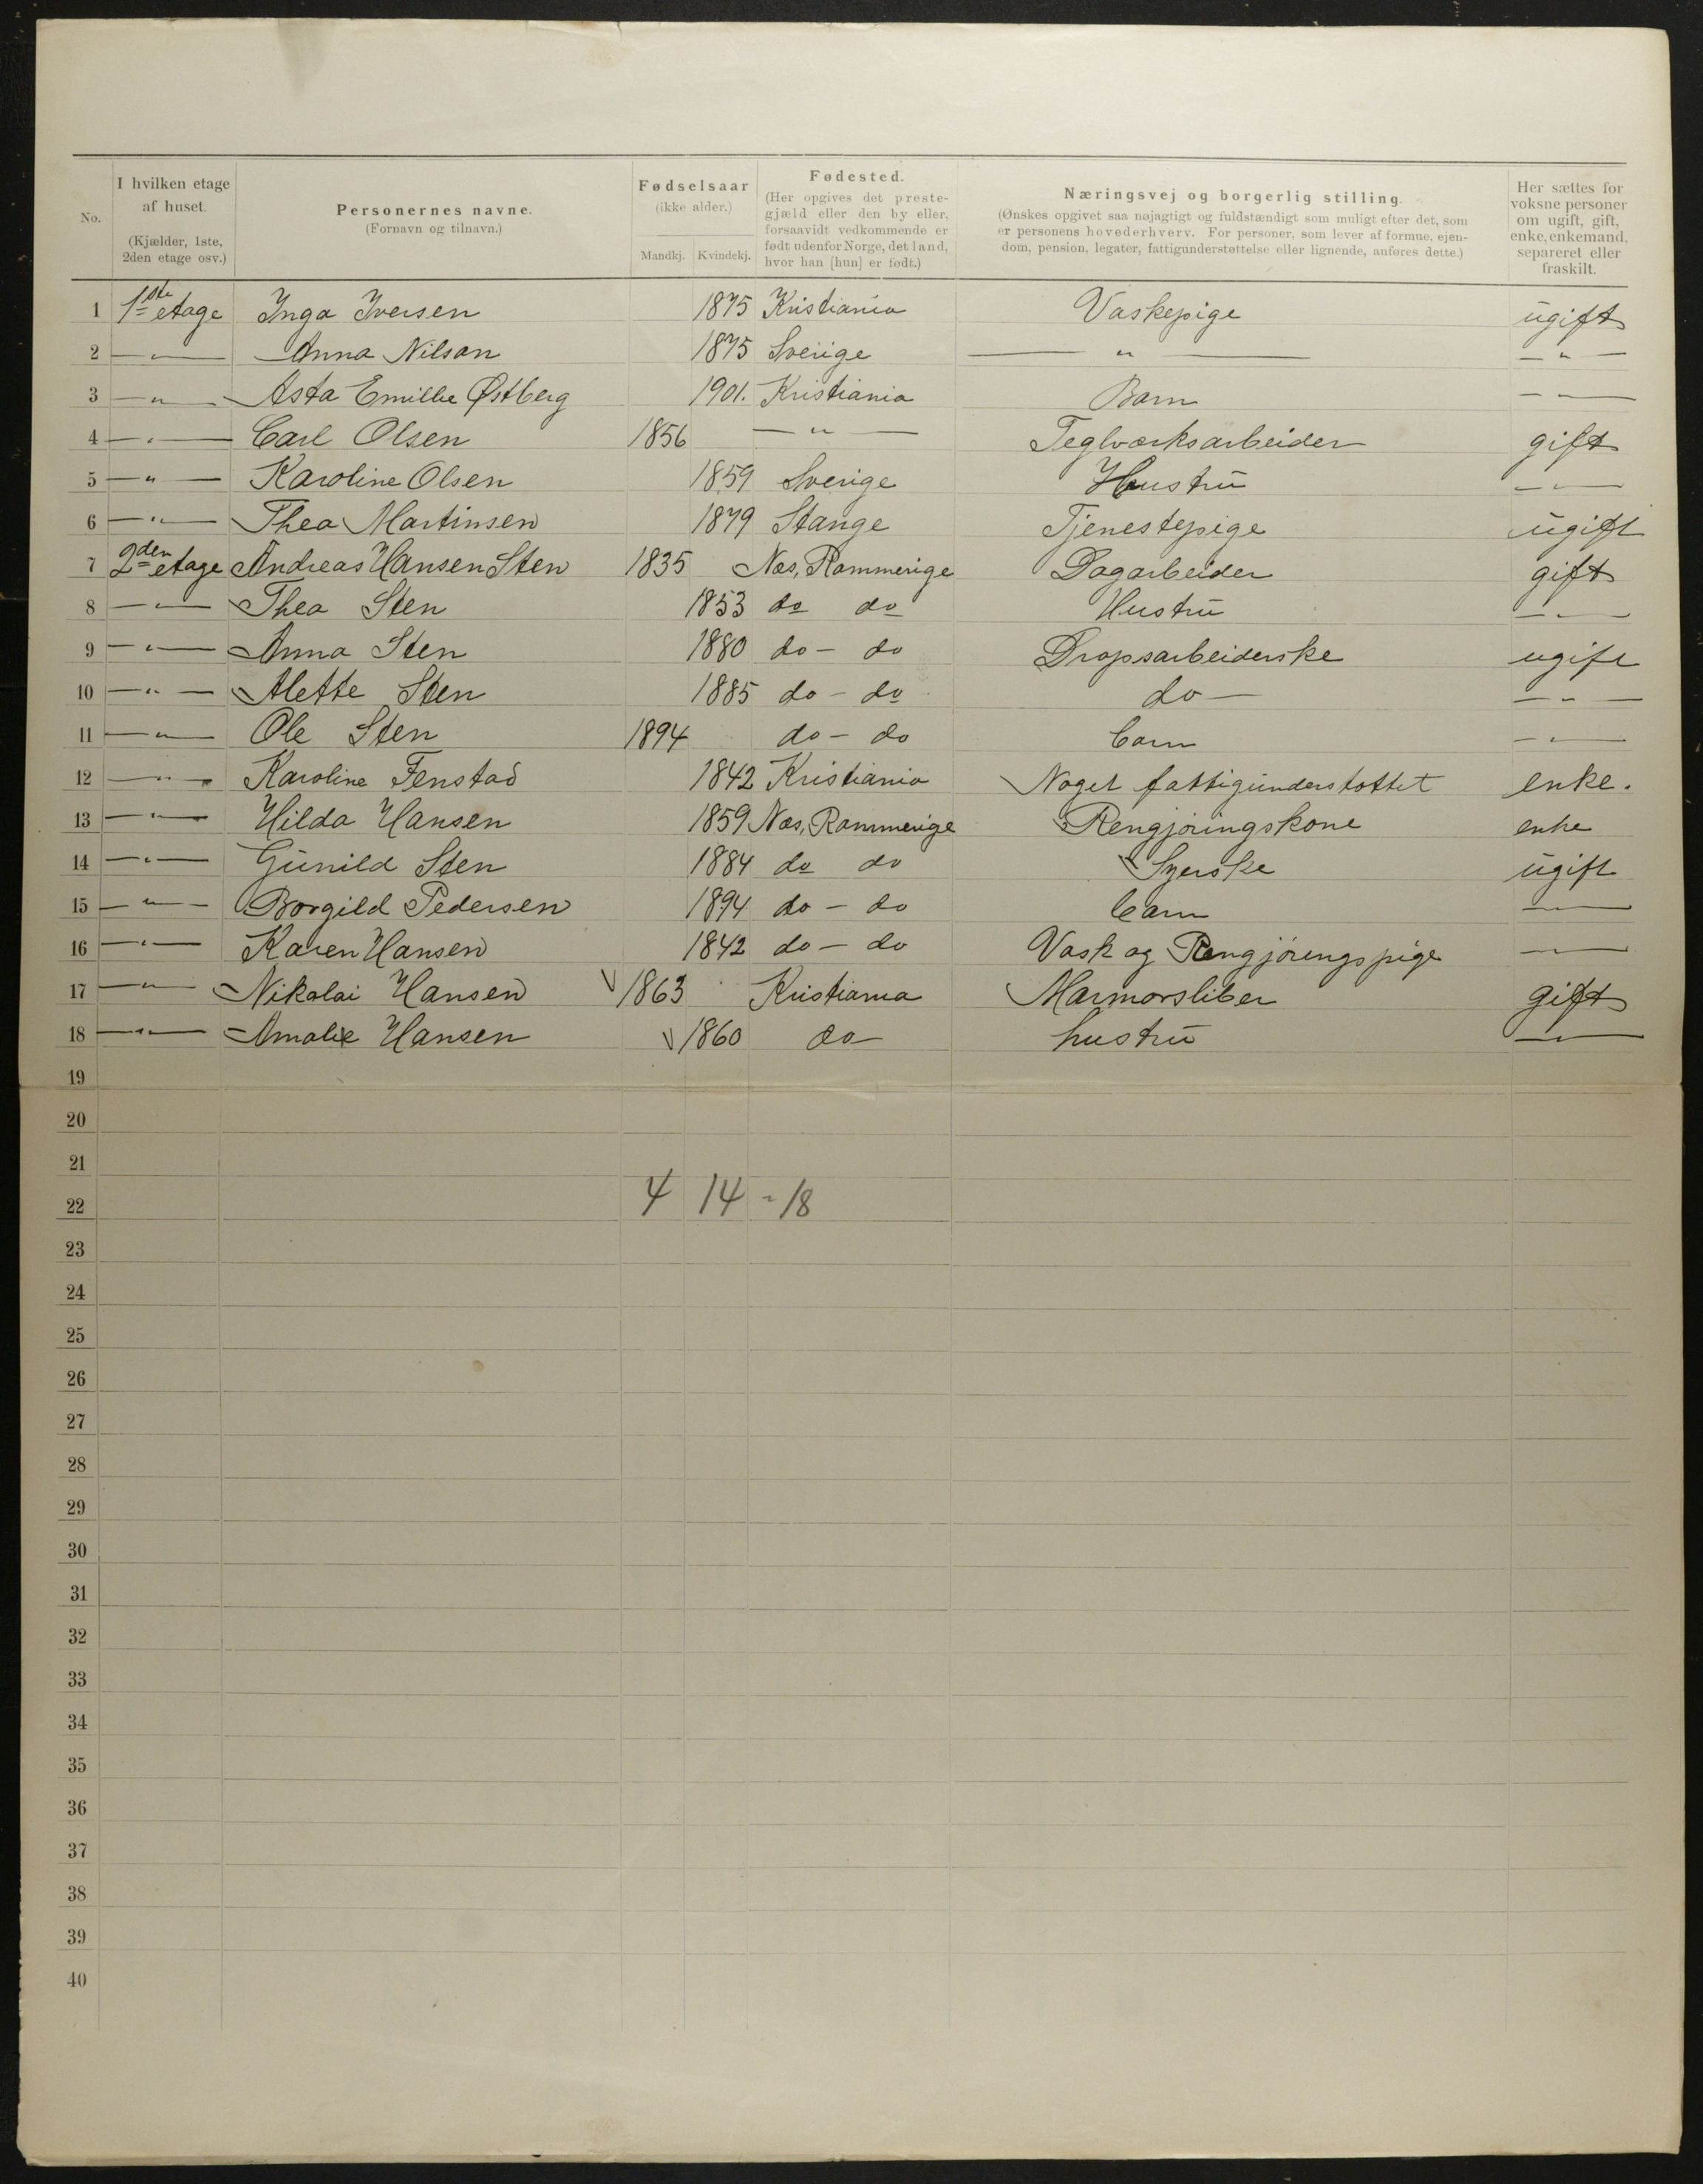 No.
I hvilken etage af huset. (Kjælder, 1ste, 2den etage osv.)
Personernes navne. (Fornavn og tilnavn.)
Fødselsaar (ikke alder.)
Mandkj. Kvindekj.
Fødested. (Her opgives det prestegjæld eller den by eller, forsaavidt vedkommende er født udenfor Norge, det land, hvor han [hun] er født.)
Næringsvej og borgerlig stilling.
(Ønskes opgivet saa nøjagtigt og fuldstændigt som muligt efter det, som er personens hovederhverv. For personer, som lever af formue, ejendom, pension, legater, fattigunderstøttelse eller lignende, anføres dette.)
Her sættes for voksne personer om ugift, gift, enke, enkemand, separeret eller fraskilt.
1 1ste etage Inga Iversen 1875 Kristiania Vaskepige ugift
2 —"— Anna Nilsan 1875 Sverige —"— —"—
3 —"— Asta Emilie Østberg 1901. Kristiania Barn —"—
4 —"— Carl Olsen 1856 —"— Teglværksarbeider gift
5 —"— Karoline Olsen 1859 Sverige Hustru —"—
6 —"— Thea Martinsen 1879 Stange Tjenestepige ugift
7 2den etage Andreas Hansen Sten 1835 Næs, Rommerige Dagarbeider gift
8 —"— Thea Sten 1853 do do Hustru —"—
9 —"— Anna Sten 1880 do – do Dropsarbeiderske ugift
10 —"— Alette Sten 1885 do – do do — —"—
11 —"— Ole Sten 1894 do – do barn —"—
12 —"— Karoline Fenstad 1842 Kristiania Noget fattigunderstøttet enke.
13 —"— Hilda Hansen 1859 Næs, Rommerige Rengjøringskone enke
14 —"— Gunild Sten 1884 do do Syerske ugift
15 —"— Borgild Pedersen 1894 do – do barn —"—
16 —"— Karen Hansen 1842 do – do Vask og Rengjøringspige —"—
17 —"— Nikolai Hansen 1863 Kristiania Marmorsliber gift
18 —"— Amalie Hansen 1860 do hustru —"—
19
20
21
22 4 14 = 18
23
24
25
26
27
28
29
30
31
32
33
34
35
36
37
38
39
40